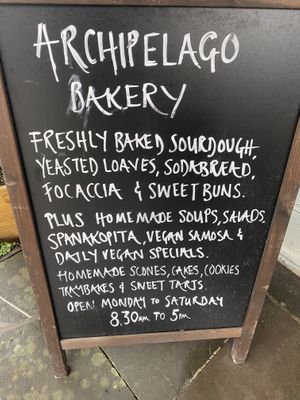 ARCHIPELAGO
BAKERY
FRESHLY BAKED SOURDOUGH,
YEASTED LOAVES, SODABREAD,
FOCACCIA & SWEET BUNS.
PLUS HOMEMADE SOUPS, SALADS,
SPANAKOPITA, VEGAN SAMOSA &
DAILY VEGAN SPECIALS.
HOMEMADE SCONES, CAKES, COOKIES
TRAYBAKES & SWEET TARTS.
OPEN MONDAY TO SATURDAY
8.30AM TO 5PM